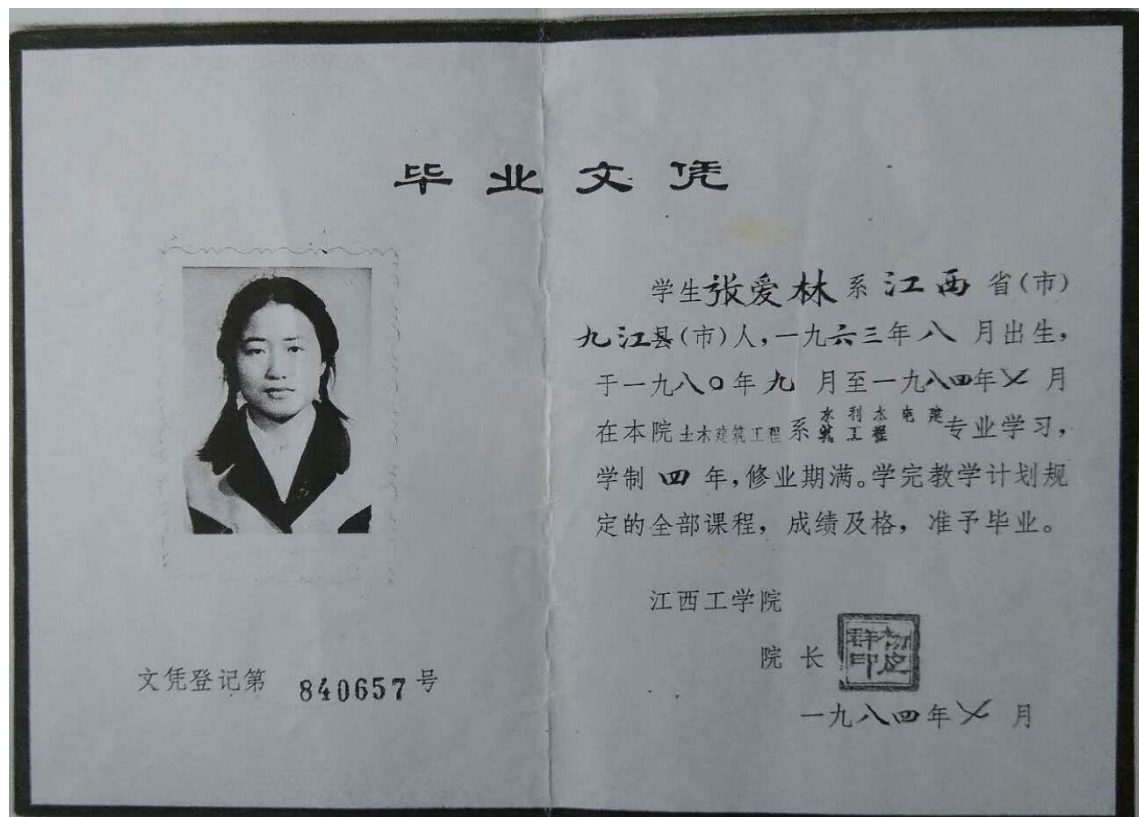 毕业文凭
学生张爱林系江西省(市)
九江县(市)人,一九六三年八月出生,
于一九八〇年九月至一九八四年七月
在本院土木建筑工程系水利水电建筑工程专业学习,
学制四年,修业期满。学完教学计划规
定的全部课程,成绩及格,准予毕业。
江西工学院
院长
一九八四年七月
文凭登记第840657号